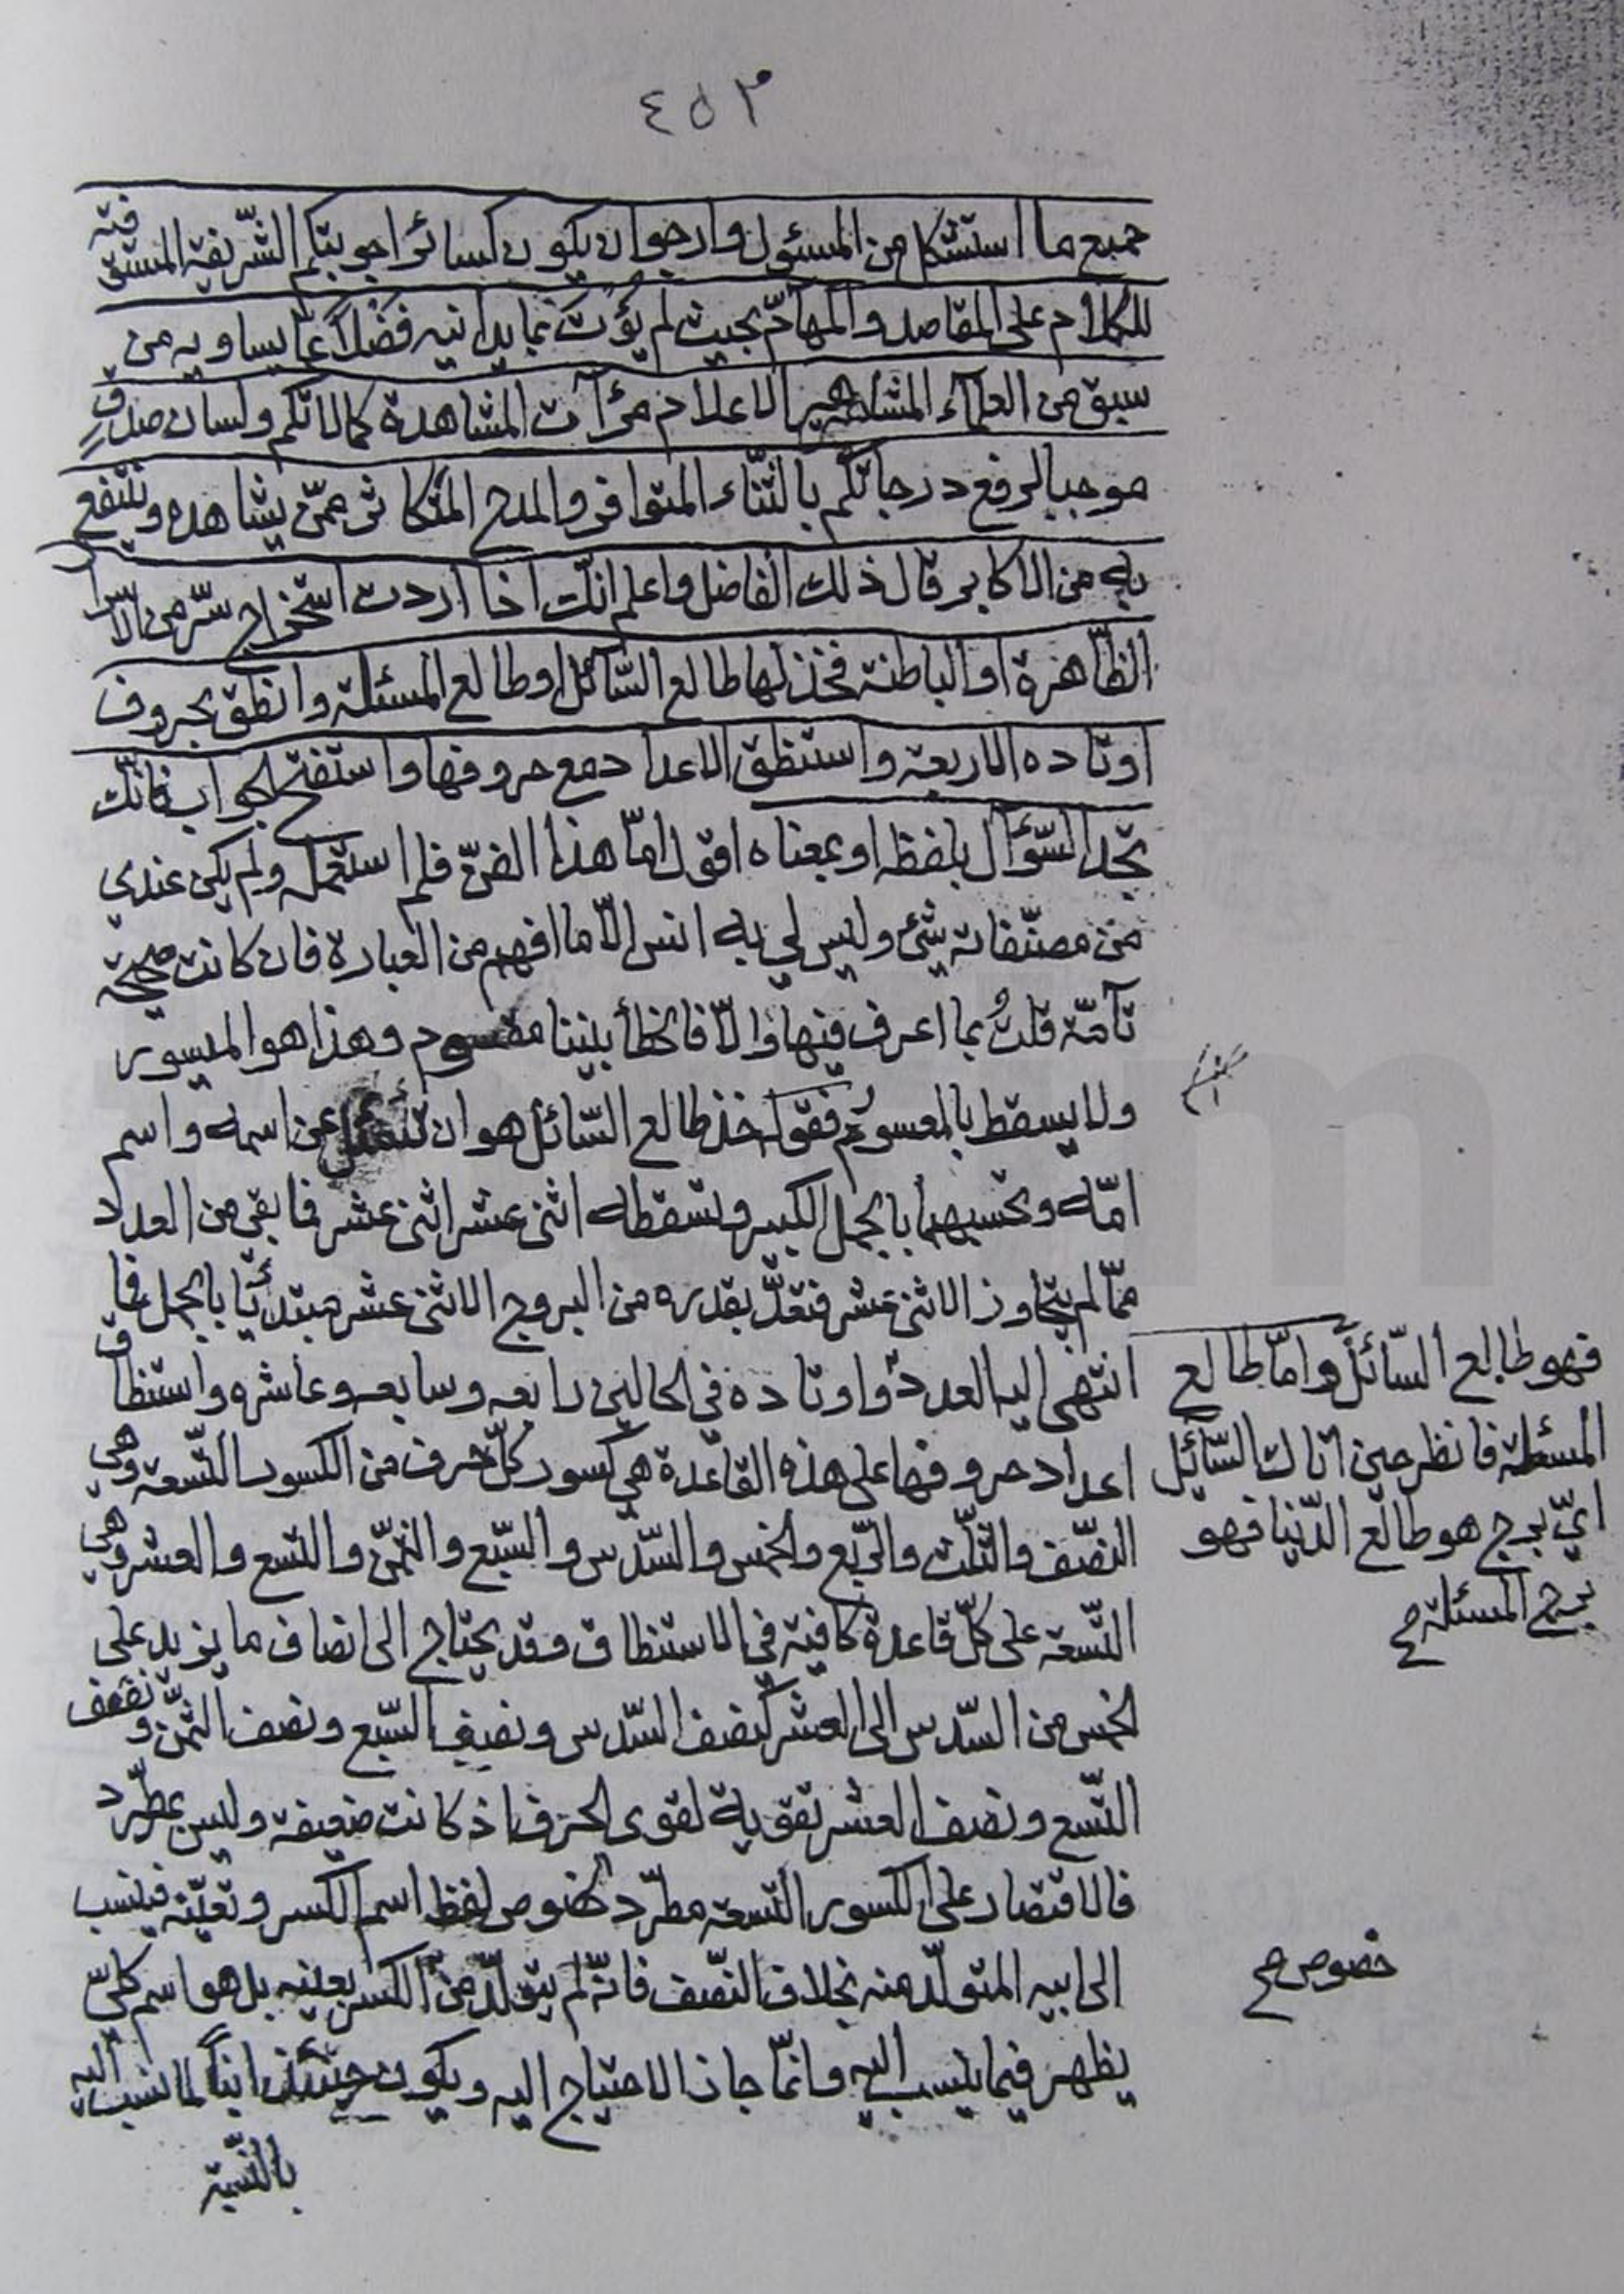 ٤٥٣
جميع ما استشكل من المسئول وارجو ان يكون كسائر اجوبتكم الشّريفة المستوفية
للكلام على المقاصد والمهامّ بحيث لم يؤت بما يدانيه فضلاً عمّا يساويه من
سبق من العلمآء المشاهير الاعلام مرآت المشاهدة كمالاتكم ولسان صدق
موجبا لرفع درجاتكم بالثّناء المتوافر والمدح المتكاثر ممّن يشاهده وينتفع
به من الاكابر قال ذلك الفاضل واعلم انّك اذا اردت استخراج سّر من الاسرا
الظّاهرة او الباطنة فخذ لها طالع السّائل او طالع المسئلة وانطق بحروف
اوتاده الاربعة واستنطق الاعداد مع حروفها واستفتح الجواب فانّك
تجد السّؤال بلفظه او بمعناه اقول امّا هذا الفنّ فلم استعمله ولم يكن عندي
من مصنّفاته شئ وليس لي به انس الّا ما افهم من العبارة فان كانت صحيحة
تآمّة قلتُ بما اعرف فيها والّا فالخطأ بيننا مقسوم وهذا هو الميسور
ولا يسقط بالمعسور فقوله خذ طالع السّائل هو ان تسئل عن اسمه واسم
امّه وتحسبهما بالجمل الكبير وتسقطه اثنى عشر اثنى عشر فما بقى من العدد
ممّا لم يتجاوز الاثنى عشر فتعدّ بقدره من البروج الاثنى عشر مبتدئا بالحمل فما
انتهى اليه العدد واوتاده في الحالين رابعه وسابعه وعاشره واستنطاق
فهو طالع السّائل وامّا طالع
المسئلة فانظر حين اتاك السّائل
ايّ برج هو طالع الدّنيا فهو
برج المسئلة صح
اعداد حروفها على هذه القاعدة هي كسور كلّ حرف من الكسور التّسعة وهي
النّصف والثّلث والرّبع والخمس والسّدس والسّبع والثّمن والتسع والعشر وهي
التّسعة على كلّ قاعدة كافية في الاستنطاق وقد يحتاج الى انصاف ما يزيد على
الخمس من السّدس الى العشر كنصف السّدس ونصف السّبع ونصف الثّمن ونصف
التّسع ونصف العشر تقوية لقوى الحرف اذ كانت ضعيفة وليس بمطّرد
فالاقتصار على الكسور التّسعة مطّرد لخصوص لفظ اسم الكسر وتعيّنه فينسب
الى ابيه المتولّد منه بخلاف النّصف فانّه لم يتولّد من الكسر بعينه بل هو اسم كلّي
خصوص صح
يظهر فيما ينسب اليه وانّما جاز الاحتياج اليه ويكون حينئذ ابناً لما نسب اليه
بالنّسبة